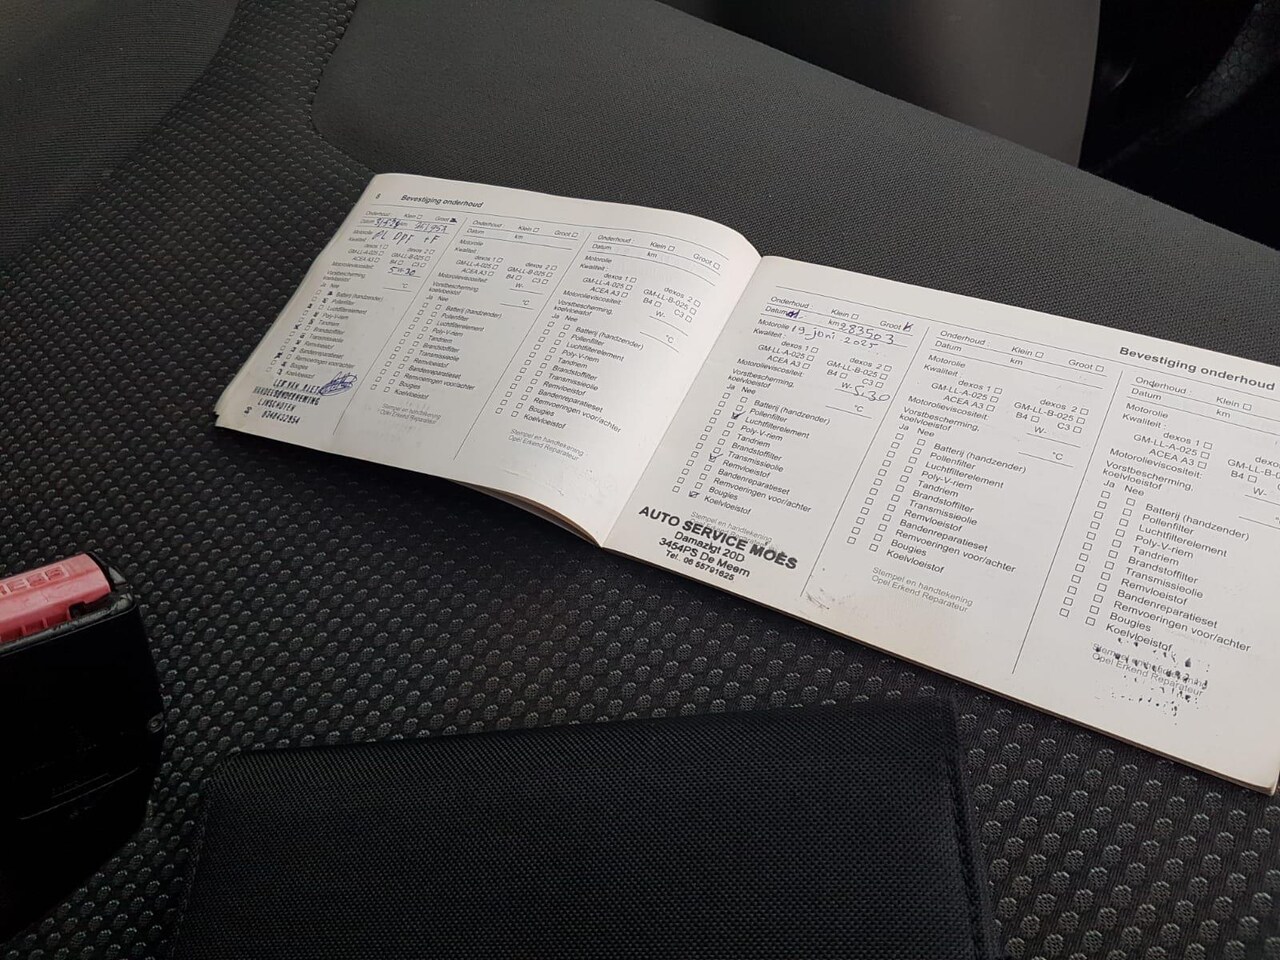 8 Bevestiging onderhoud
Onderhoud : Klein □ Groot
Datum km
Motorolie DPF
Kwaliteit :
dexos 1 □ dexos 2 □
GM-LL-A-025 □ GM-LL-B-025 □
ACEA A3 □ B4 □ C3 □
Motorolieviscositeit: 5W-30
Vorstbescherming,
koelvloeistof °C
Ja Nee
Batterij (handzender)
Pollenfilter
Luchtfilterelement
Poly-V-riem
Tandriem
Brandstoffilter
Transmissieolie
Remvloeistof
Bandenreparatieset
Remvoeringen voor/achter
Bougies
Koelvloeistof
HANDELSONDERNEMING
LINSCHOTEN
Onderhoud : Klein □ Groot □
Datum km
Motorolie
Kwaliteit :
dexos 1 □ dexos 2 □
GM-LL-A-025 □ GM-LL-B-025 □
ACEA A3 □ B4 □ C3 □
Motorolieviscositeit: W-
Vorstbescherming,
koelvloeistof °C
Ja Nee
□ □ Batterij (handzender)
□ □ Pollenfilter
□ □ Luchtfilterelement
□ □ Poly-V-riem
□ □ Tandriem
□ □ Brandstoffilter
□ □ Transmissieolie
□ □ Remvloeistof
□ □ Bandenreparatieset
□ □ Remvoeringen voor/achter
□ □ Bougies
□ □ Koelvloeistof
Stempel en handtekening
Opel Erkend Reparateur
Onderhoud : Klein □ Groot □
Datum km
Motorolie
Kwaliteit :
dexos 1 □ dexos 2 □
GM-LL-A-025 □ GM-LL-B-025 □
ACEA A3 □ B4 □ C3 □
Motorolieviscositeit: W-
Vorstbescherming,
koelvloeistof °C
Ja Nee
□ □ Batterij (handzender)
□ □ Pollenfilter
□ □ Luchtfilterelement
□ □ Poly-V-riem
□ □ Tandriem
□ □ Brandstoffilter
□ □ Transmissieolie
□ □ Remvloeistof
□ □ Bandenreparatieset
□ □ Remvoeringen voor/achter
□ □ Bougies
□ □ Koelvloeistof
Stempel en handtekening
Opel Erkend Reparateur
Bevestiging onderhoud
Onderhoud : Klein □ Groot
Datum km 283503
Motorolie 19 juni 2025
Kwaliteit :
dexos 1 □ dexos 2 □
GM-LL-A-025 □ GM-LL-B-025 □
ACEA A3 □ B4 □ C3 □
Motorolieviscositeit: W- 5-30
Vorstbescherming,
koelvloeistof °C
Ja Nee
Batterij (handzender)
Pollenfilter
Luchtfilterelement
Poly-V-riem
Tandriem
Brandstoffilter
Transmissieolie
Remvloeistof
Bandenreparatieset
Remvoeringen voor/achter
Bougies
Koelvloeistof
Stempel en handtekening
AUTO SERVICE MOËS
Damzigt 20D
3454PS De Meern
Tel. 06 55791625
Onderhoud : Klein □ Groot □
Datum km
Motorolie
Kwaliteit :
dexos 1 □ dexos 2 □
GM-LL-A-025 □ GM-LL-B-025 □
ACEA A3 □ B4 □ C3 □
Motorolieviscositeit: W-
Vorstbescherming,
koelvloeistof °C
Ja Nee
□ □ Batterij (handzender)
□ □ Pollenfilter
□ □ Luchtfilterelement
□ □ Poly-V-riem
□ □ Tandriem
□ □ Brandstoffilter
□ □ Transmissieolie
□ □ Remvloeistof
□ □ Bandenreparatieset
□ □ Remvoeringen voor/achter
□ □ Bougies
□ □ Koelvloeistof
Stempel en handtekening
Opel Erkend Reparateur
Onderhoud : Klein □
Datum km
Motorolie
Kwaliteit :
dexos 1 □
GM-LL-A-025 □
ACEA A3 □ B4 □
Motorolieviscositeit: W-
Vorstbescherming,
koelvloeistof
Ja Nee
□ □ Batterij (handzender)
□ □ Pollenfilter
□ □ Luchtfilterelement
□ □ Poly-V-riem
□ □ Tandriem
□ □ Brandstoffilter
□ □ Transmissieolie
□ □ Remvloeistof
□ □ Bandenreparatieset
□ □ Remvoeringen voor/achter
□ □ Bougies
□ □ Koelvloeistof
Stempel en handtekening
Opel Erkend Reparateur